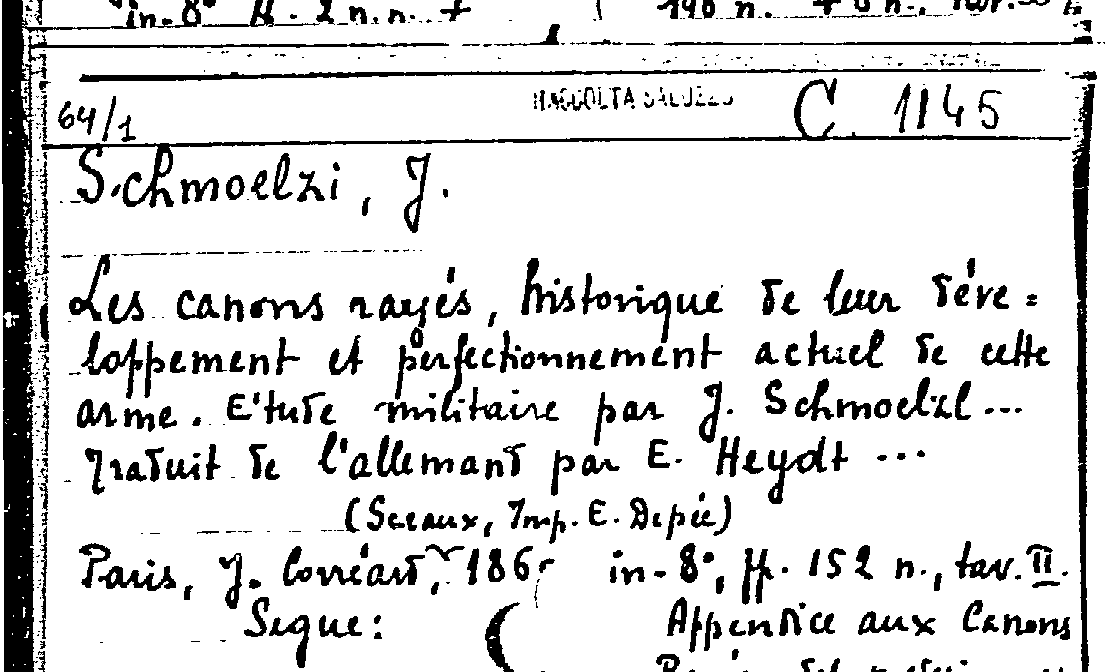 in-8° ff. 2 n.n. +
64/1 RACCOLTA SALUZZO C. 1145
Schmoelzi, J.
Les canons rayés, historique de leur déve=
loppement et perfectionnement actuel de cette
arme. E'tude militaire par J. Schmoelzl...
Traduit de l'allemand par E. Heydt ...
(Sceaux, Imp. E. Dépée)
Paris, J. Corréard, in-8°, ff. 152 n., tav. II.
Segue: Appendice aux Canons